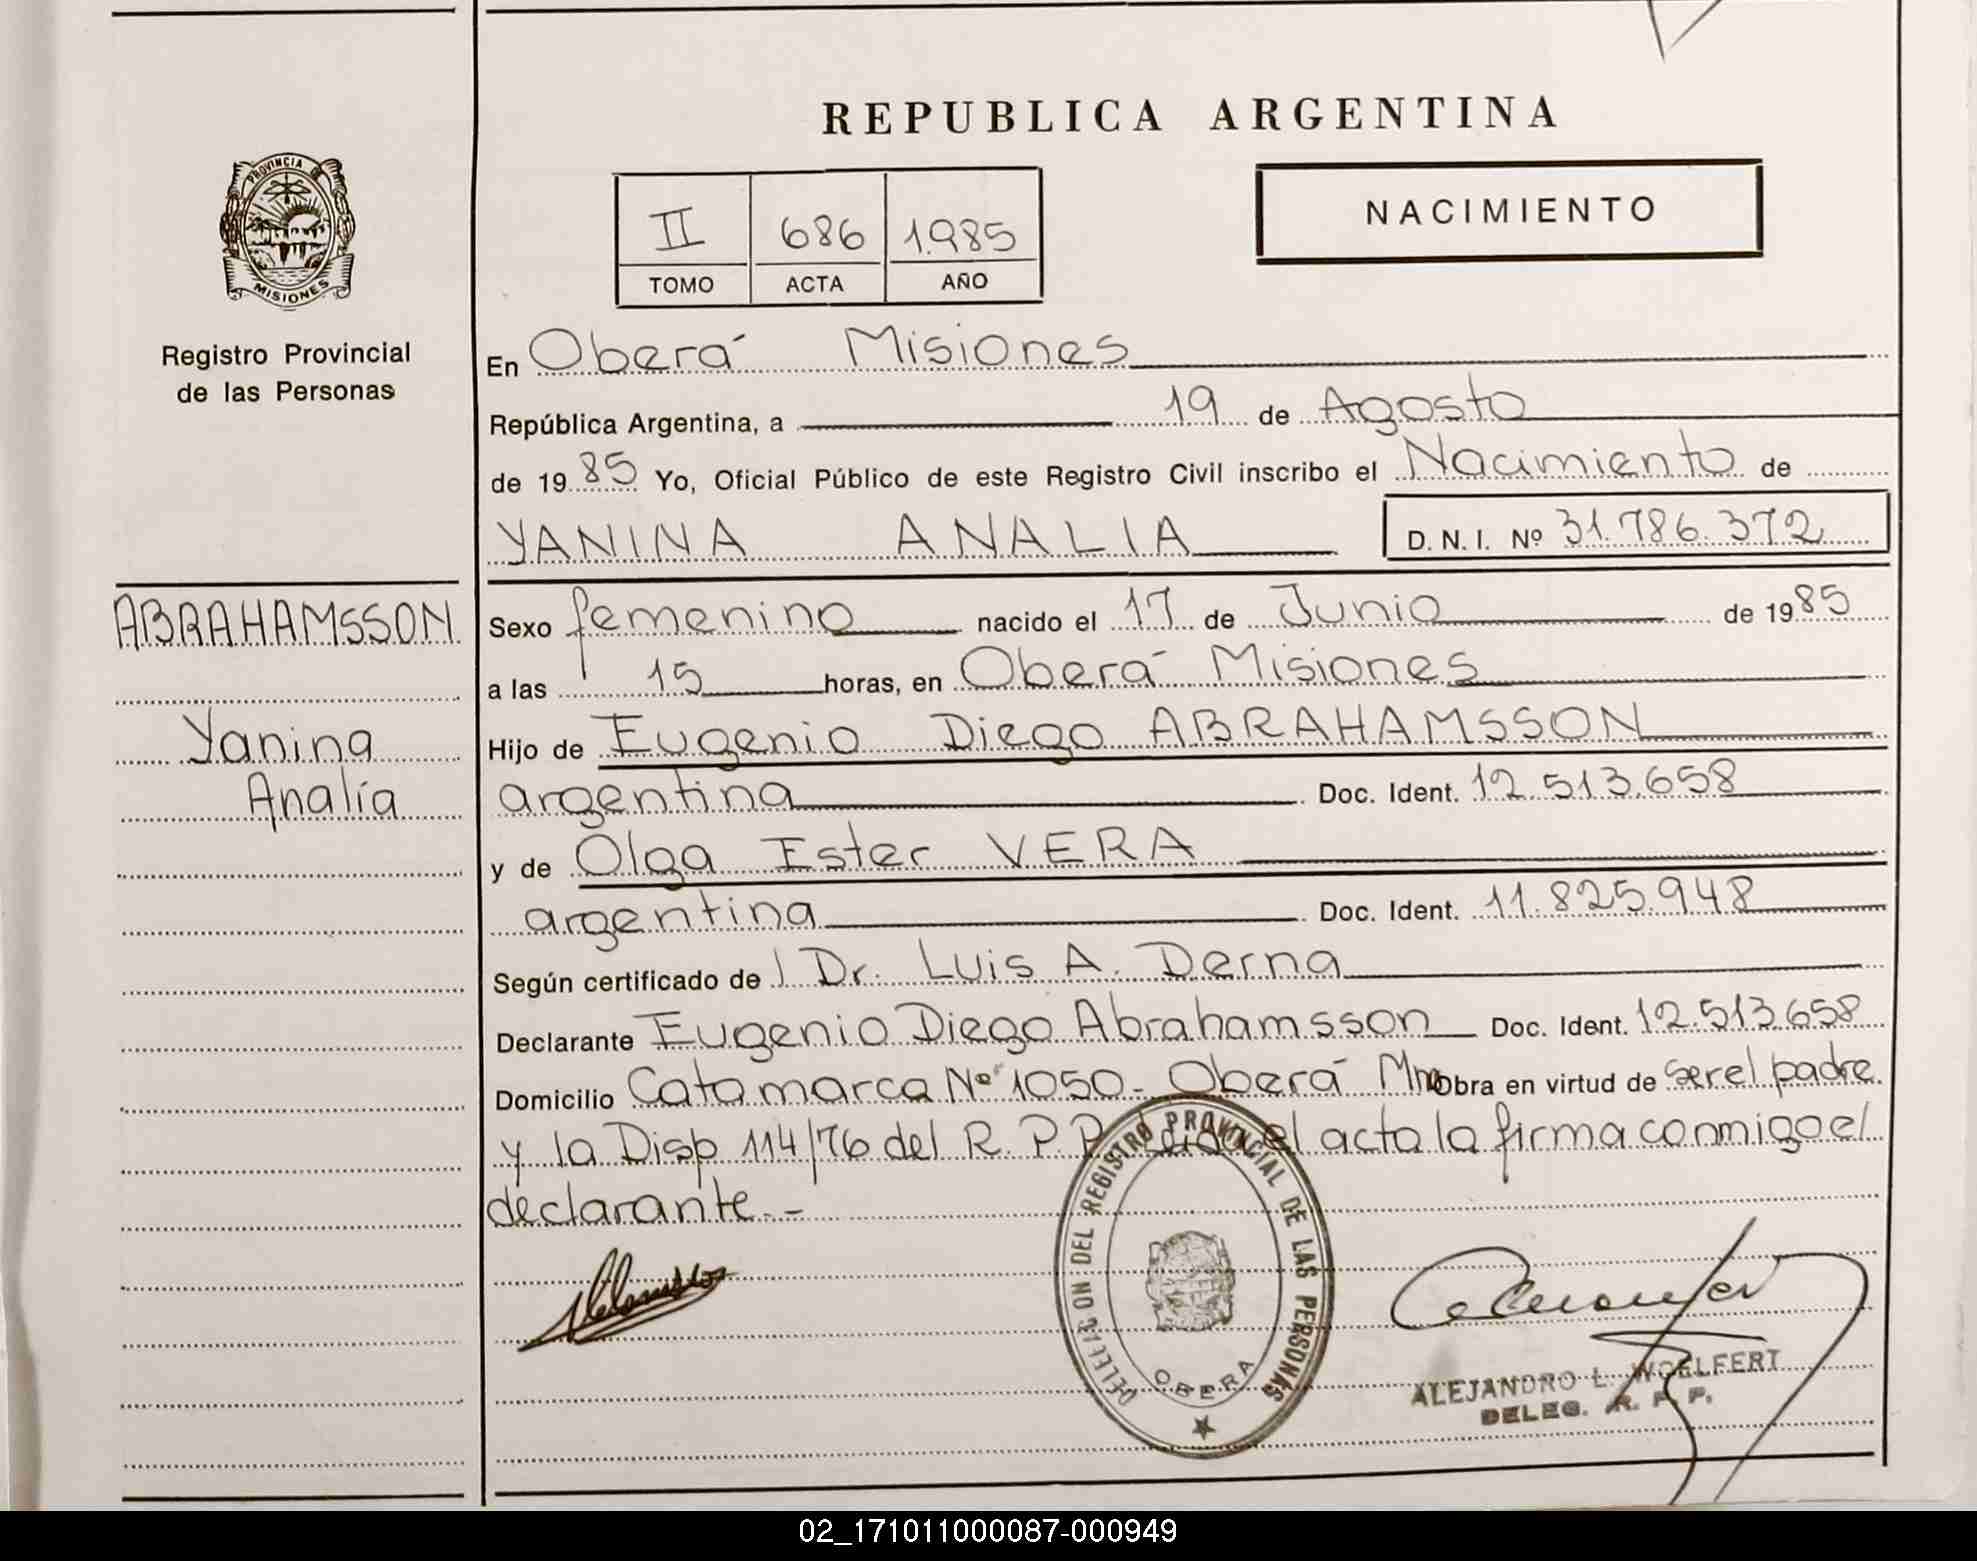 REPUBLICA ARGENTINA
PROVINCIA DE
MISIONES
Registro Provincial
de las Personas
II 686 1.985
TOMO ACTA AÑO
NACIMIENTO
En Oberá Misiones
República Argentina, a 19 de Agosto
de 19 85 Yo, Oficial Público de este Registro Civil inscribo el Nacimiento de
YANINA ANALIA D. N. I. Nº 31.786.372
ABRAHAMSSON
Yanina
Analía
Sexo femenino nacido el 17 de Junio de 19 85
a las 15 horas, en Oberá Misiones
Hijo de Eugenio Diego ABRAHAMSSON
argentina Doc. Ident. 12.513.658
y de Olga Ester VERA
argentina Doc. Ident. 11.825.948
Según certificado de Dr. Luis A. Derna
Declarante Eugenio Diego Abrahamsson Doc. Ident. 12.513.658
Domicilio Catamarca Nº 1050 - Oberá Obra en virtud de ser el padre
y la Disp 114/76 del R. P. P. el acta la firma conmigo el
declarante.-
DEL REGISTRO PROVINCIAL DE LAS PERSONAS
OBERA
ALEJANDRO L. WOELFERT
DELEG. R. P. P.
02_171011000087-000949